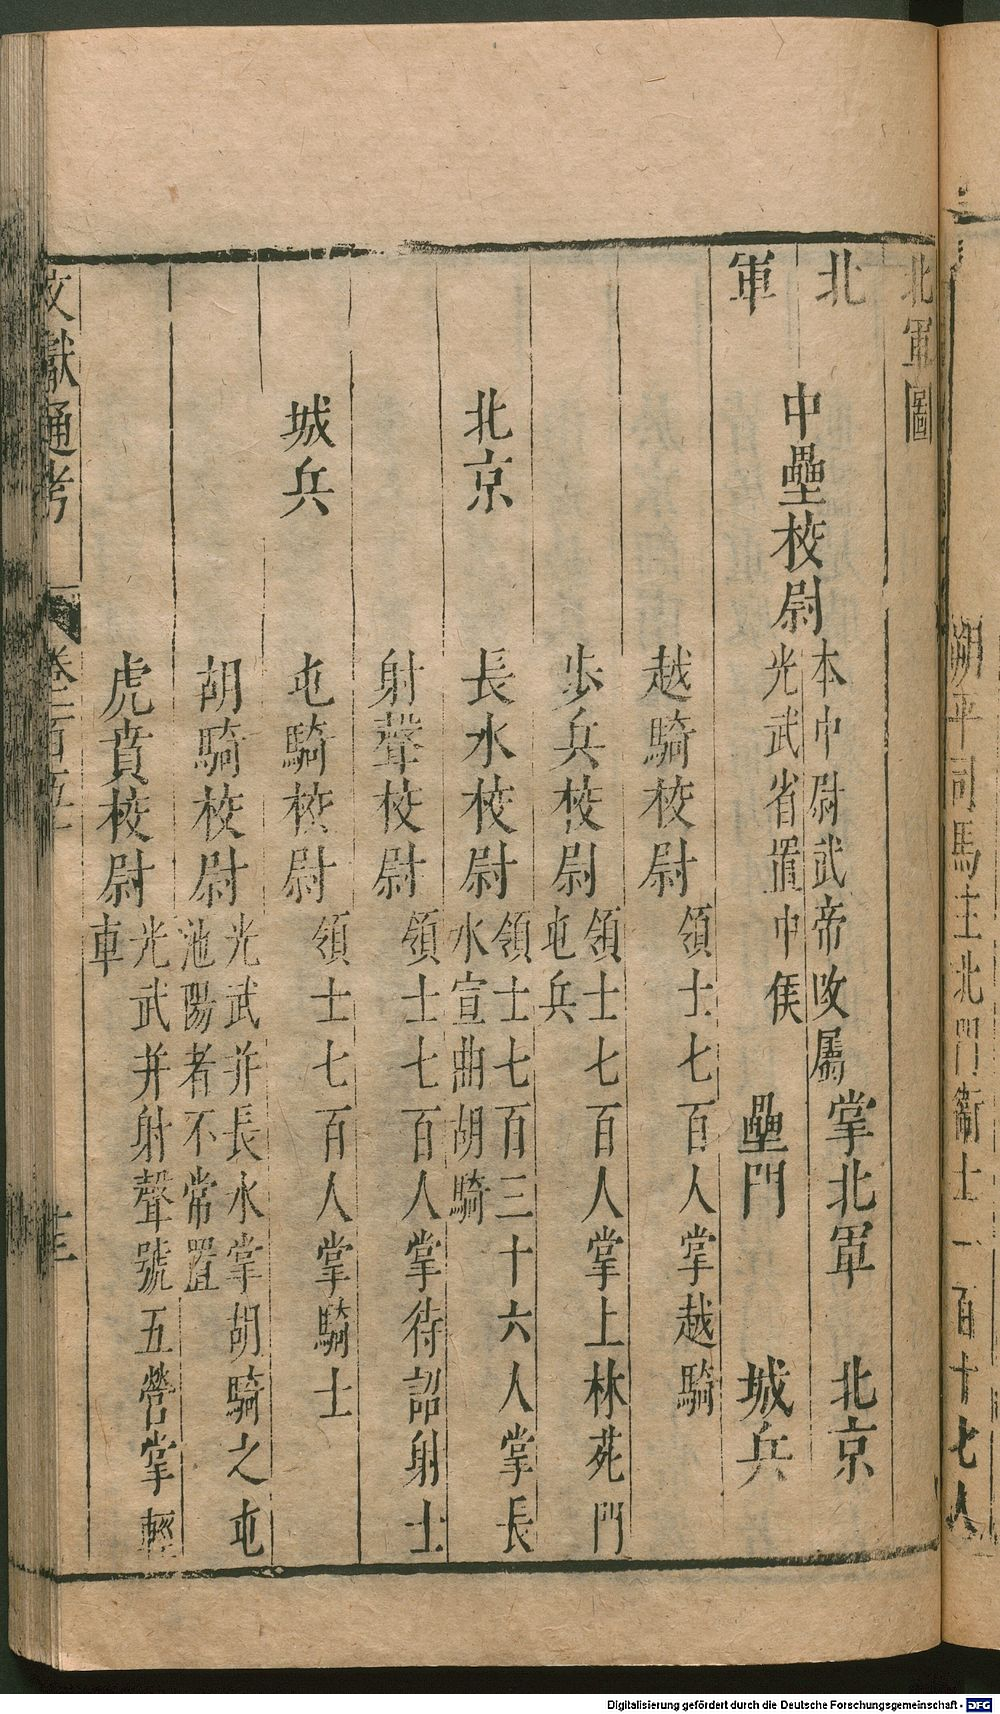 朔平司馬主北門衞士一百十七人
北軍圖
北
軍
中壘校尉
本中尉武帝改屬
光武省置中侯
掌北軍
壘門
北京
城兵
越騎校尉
領士七百人掌越騎
步兵校尉
領士七百人掌上林苑門
屯兵
北京
長水校尉
領士七百三十六人掌長
水宣曲胡騎
射聲校尉
領士七百人掌待詔射士
城兵
屯騎校尉
領士七百人掌騎士
胡騎校尉
光武并長水掌胡騎之屯
池陽者不常置
虎賁校尉
光武并射聲號五營掌輕
車
文獻通考
卷一百五十
Digitalisierung gefördert durch die Deutsche Forschungsgemeinschaft - DFG